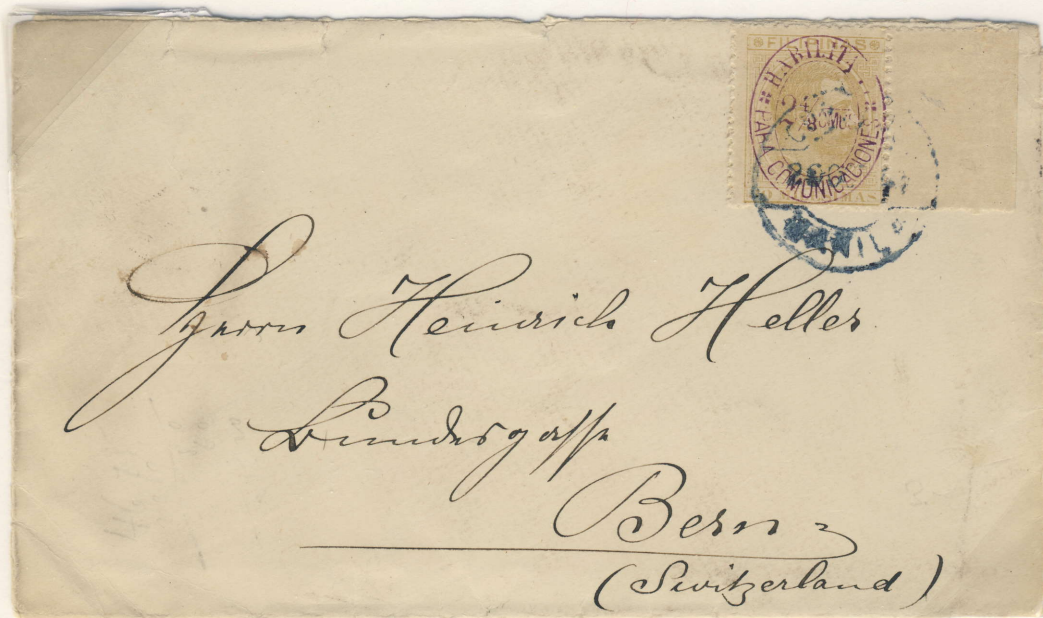 FILIPINAS
HABILITA
PARA COMUNICACIONES
MANIL
Herrn Heinrich Heller
Bundesgasse
Bern
(Switzerland)